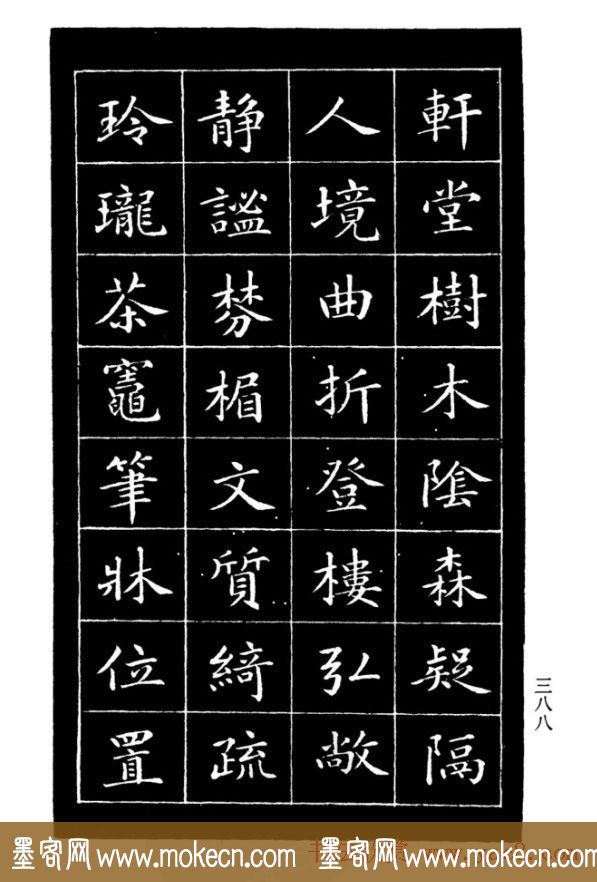 軒堂樹木陰森疑隔
人境曲折登樓弘敞
静謐棼楣文質綺疏
玲瓏茶竈筆牀位置
三八八
墨客网 www.mokecn.com 墨客网 www.mokecn.com